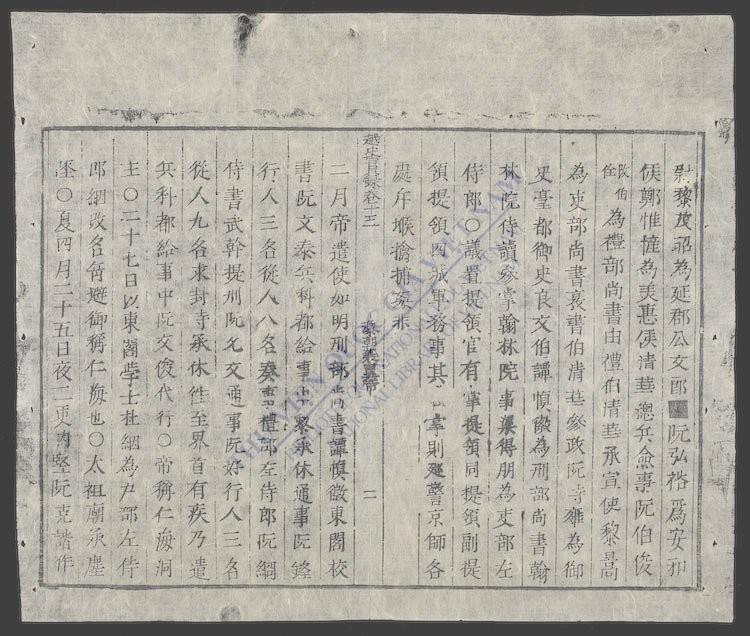 尉黎茂昭為延郡公文郎阮弘裕為安和
侯鄭惟憧為美惠侯清華總兵僉事阮伯俊
攸伯
銓為禮部尚書由禮伯清華承宣使黎嵩
為吏部尚書襄書伯清華參政阮寺雍為御
史臺都御史良文伯譚慎徽為刑部尚書翰
林院侍讀參掌翰林院事梁得朋為吏部左
侍郎○議置提領官有掌提領同提領副提
領提領四城軍務事其職掌則巡警京師各
處斥堠擒捕姦未
越史實錄卷十三
黎朝襄翼帝
二
二月帝遣使如明刑部尚書譚慎徽東閣校
書阮文泰兵科都給事中黎承休通事阮鋒
行人三名從人八名奏事禮部左侍郎阮綱
侍書武幹提刑阮允文通事阮好行人三名
從人九名求封寺承休徃至界首有疾乃遣
兵科都給事中阮文俊代行○帝稱仁海洞
主○二十七日以東閣學士杜綱為户部左侍
郎綱改名岳避御稱仁海也○太祖廟承塵
墜○夏四月二十五日夜二更內堅阮克諧作